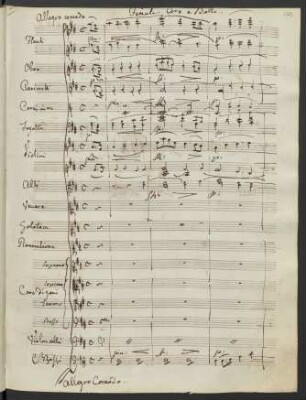 Allegro comodo
Finale Coro e Ballo
Flauti
Oboe
Clarinetti
Corni in
Fagotti
Violini
Alti
Venere
Galatea
Pimmalione
Soprani
Coro di geni
Tenori
Bassi
Violoncelli
C. Bassi
Allegro Comodo